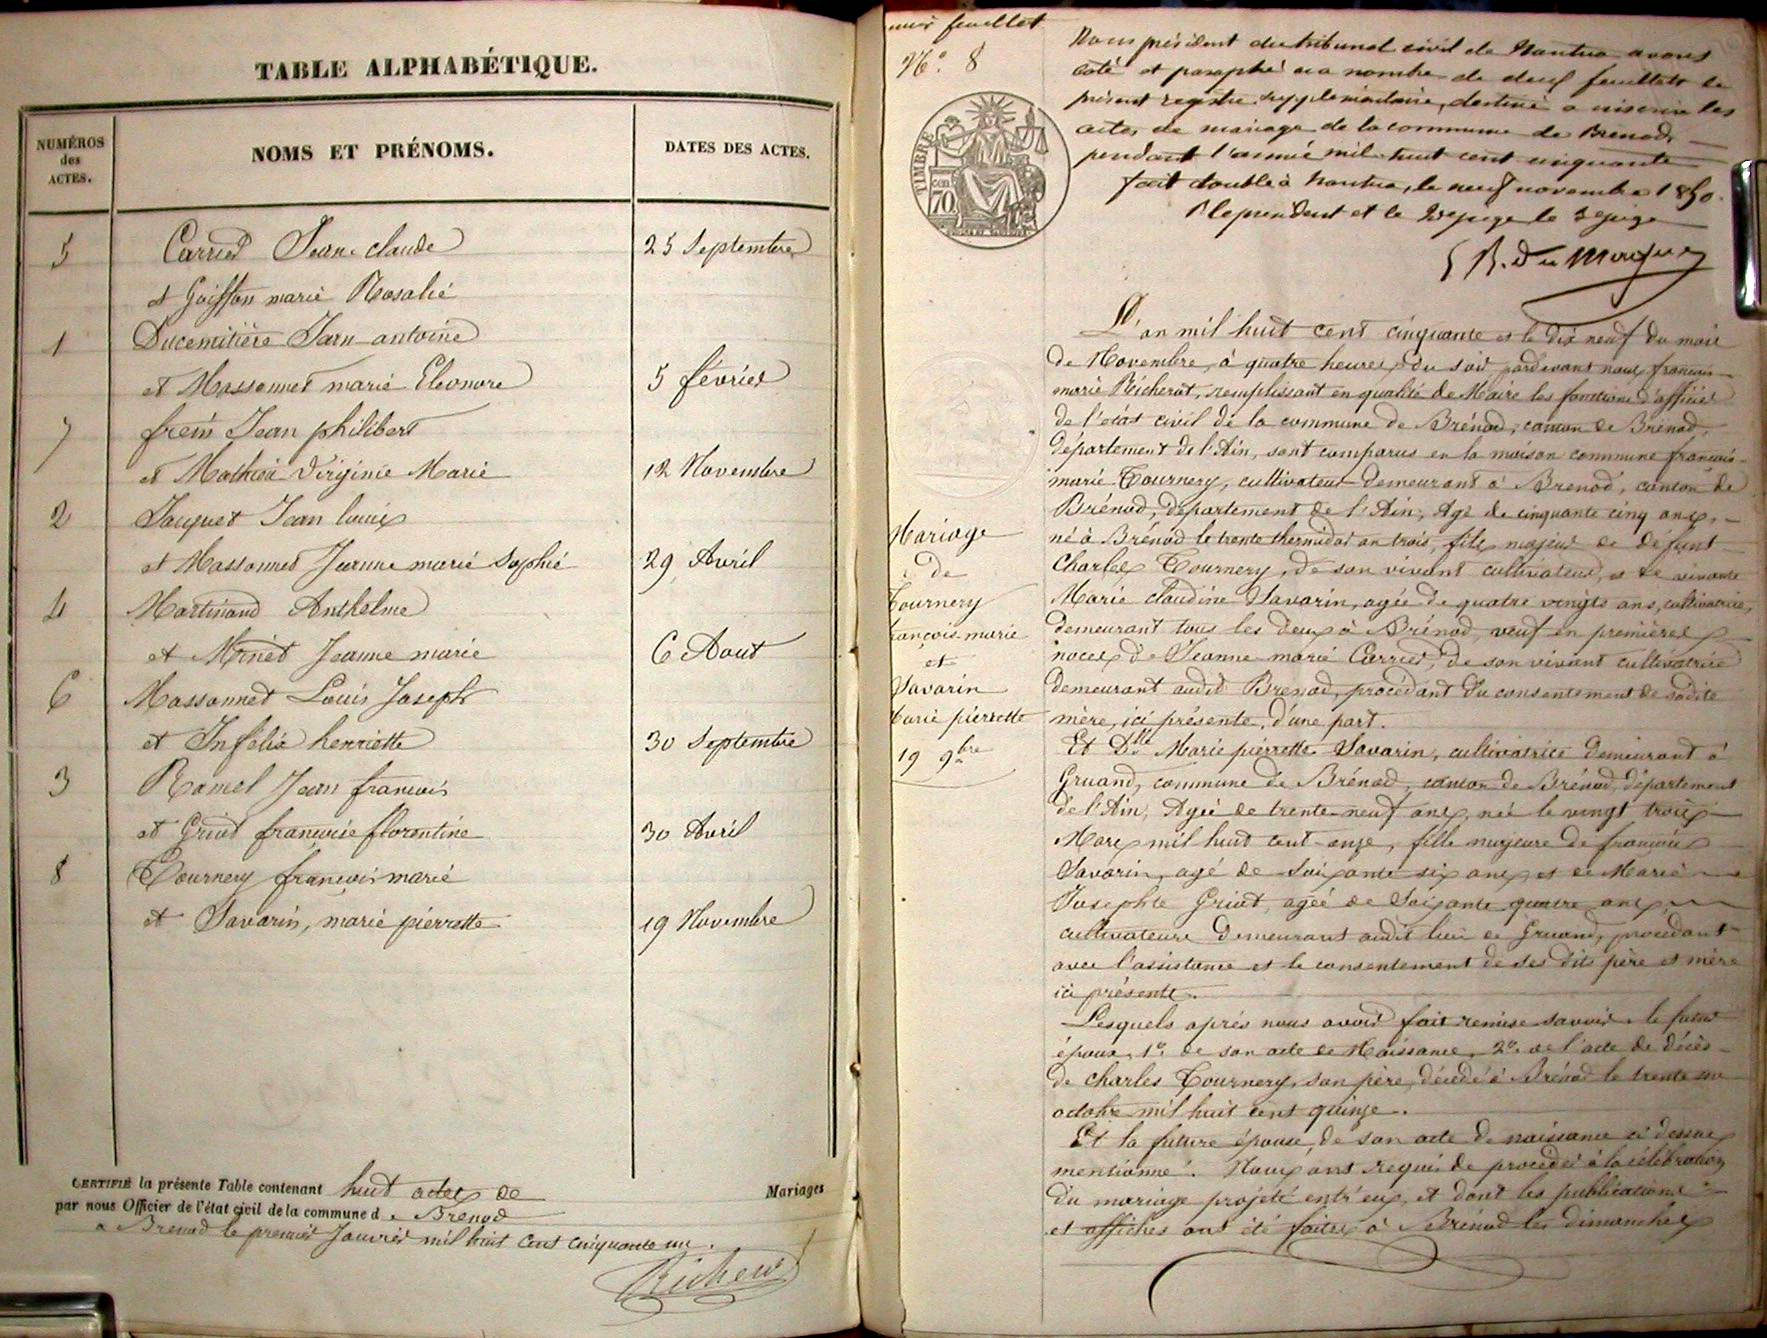 TABLE ALPHABÉTIQUE.
NUMÉROS
des
ACTES.
NOMS ET PRÉNOMS.
DATES DES ACTES.
5 Carrier Jean-claude 25 Septembre
et Goiffon marie Rosalie
1 Ducemitière Jean antoine
et Massonnet marie Eléonore 5 février
7 frein Jean philibert
et Mathieu Virginie Marie 12 Novembre
2 Jacquet Jean louis
et Massonnet Jeanne marie Sophie 29 Avril
4 Martinand Anthelme
et Minet Jeanne marie 6 Aout
6 Massonnet Louis Joseph
et Infélix henriette 30 Septembre
3 Ramel Jean francois
et Griot francoise florentine 30 Avril
8 Tournery françois marie
et Savarin, marie pierrette 19 Novembre
CERTIFIÉ la présente Table contenant huit actes de Mariages
par nous Officier de l'état civil de la commune de Brenod
a Brenod le premier Janvier mil huit cent cinquante un.
Richerot
feuillet
N°. 8
TIMBRE
70
Nous président du tribunal civil de Nantua avons
coté et paraphé au nombre de deux feuillets le
présent registre supplémentaire, destiné a inscrire les
actes de mariage de la commune de Brenod,
pendant l'année mil huit cent cinquante
fait double à Nantua, le neuf novembre 1850.
Mariage
de
Tournery
françois marie
et
Savarin
Marie pierrette
19 9bre
L'an mil huit cent cinquante et le dix neuf du mois
de Novembre, à quatre heures du soir pardevant nous francois
marie Richerot, remplissant en qualité de Maire les fonctions d'officier
de l'état civil de la commune de Brénod, canton de Brénod,
département de l'Ain, sont comparus en la maison commune francois
marie Tournery, cultivateur demeurant à Brenod, canton de
Brénod, département de l'Ain, Agé de cinquante cinq ans,
né à Brénod le trente thermidor an trois, fils majeur de défunt
Charles Tournery, de son vivant cultivateur, et de vivante
Marie claudine Savarin, agée de quatre vingts ans, cultivatrice,
demeurant tous les deux à Brénod, veuf en premières
noces de Jeanne marie Carrier, de son vivant cultivatrice
demeurant audit Brenod, procédant du consentement de sadite
mère, ici présente, d'une part.
Et Dlle Marie pierrette Savarin, cultivatrice demeurant à
Gruand, commune de Brénod, canton de Brénod, département
de l'Ain, Agée de trente neuf ans, née le vingt trois
Mars mil huit cent onze, fille majeure de francois
Savarin, agé de Soixante six ans, et de Marie
Josephte Griot, agée de Soixante quatre ans,
cultivateurs demeurant audit lieu de Gruand, procédant
avec l'assistance et le consentement de ses dits père et mère
ici présents.
Lesquels aprés nous avoir fait remise savoir, le futur
époux, 1°. de son acte de Naissance, 2°. de l'acte de décès
de Charles Tournery, son père, décédé à Brénod le trente un
octobre mil huit cent quinze.
Et la future épouse, de son acte de naissance ci dessus
mentionné. Nous ont requis de procéder à la célébration
du mariage projeté entr'eux, et dont les publications
et affiches ont été faites à Brénod les dimanches